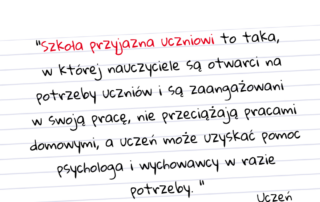 "Szkoła przyjazna uczniowi to taka,
w której nauczyciele są otwarci na
potrzeby uczniów i są zaangażowani
w swoją pracę, nie przeciążają pracami
domowymi, a uczeń może uzyskać pomoc
psychologa i wychowawcy w razie
potrzeby. "
Uczeń